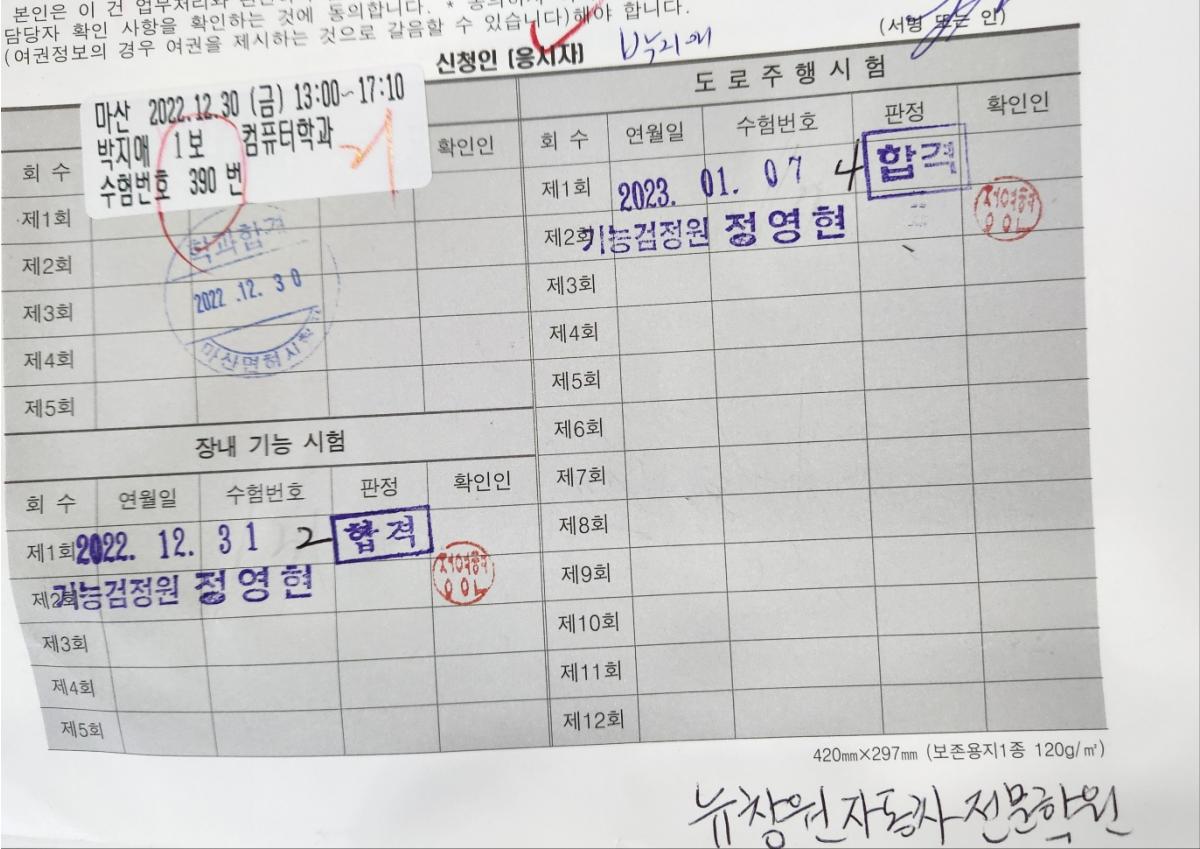 본인은 이 건 업무처리와
담당자 확인 사항을 확인하는 것에 동의합니다. *
(여권정보의 경우 여권을 제시하는 것으로 갈음할 수 있습니다)해야 합니다.
신청인 (응시자) 박지애 (서명 또는 인)
마산 2022.12.30 (금) 13:00~17:10
박지애 1보 컴퓨터학과
수험번호 390 번
회 수 확인인
제1회
제2회
제3회
제4회
제5회
학과합격
2022.12.30
마산면허시험
장내 기능 시험
회 수 연월일 수험번호 판정 확인인
제1회 2022. 12. 31 2 합격
제2회 기능검정원 정영현
제3회
제4회
제5회
도로주행시험
회 수 연월일 수험번호 판정 확인인
제1회 2023. 01. 07 4 합격
제2회 기능검정원 정영현
제3회
제4회
제5회
제6회
제7회
제8회
제9회
제10회
제11회
제12회
420㎜×297㎜ (보존용지1종 120g/㎡)
뉴창원자동차전문학원